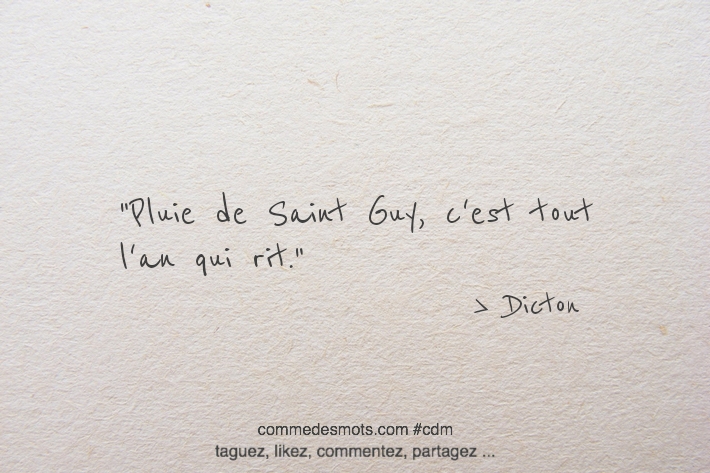 "Pluie de Saint Guy, c'est tout
l'an qui rit."
> Dicton
commedesmots.com #cdm
taguez, likez, commentez, partagez ...